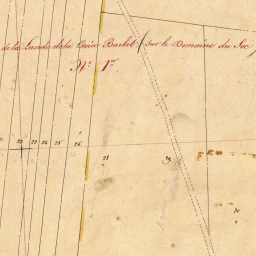 de la Lande de la Croix Barbet (sur le Domaine du Sec
N.º 1.er
22 23 24 25 26 28 29
30